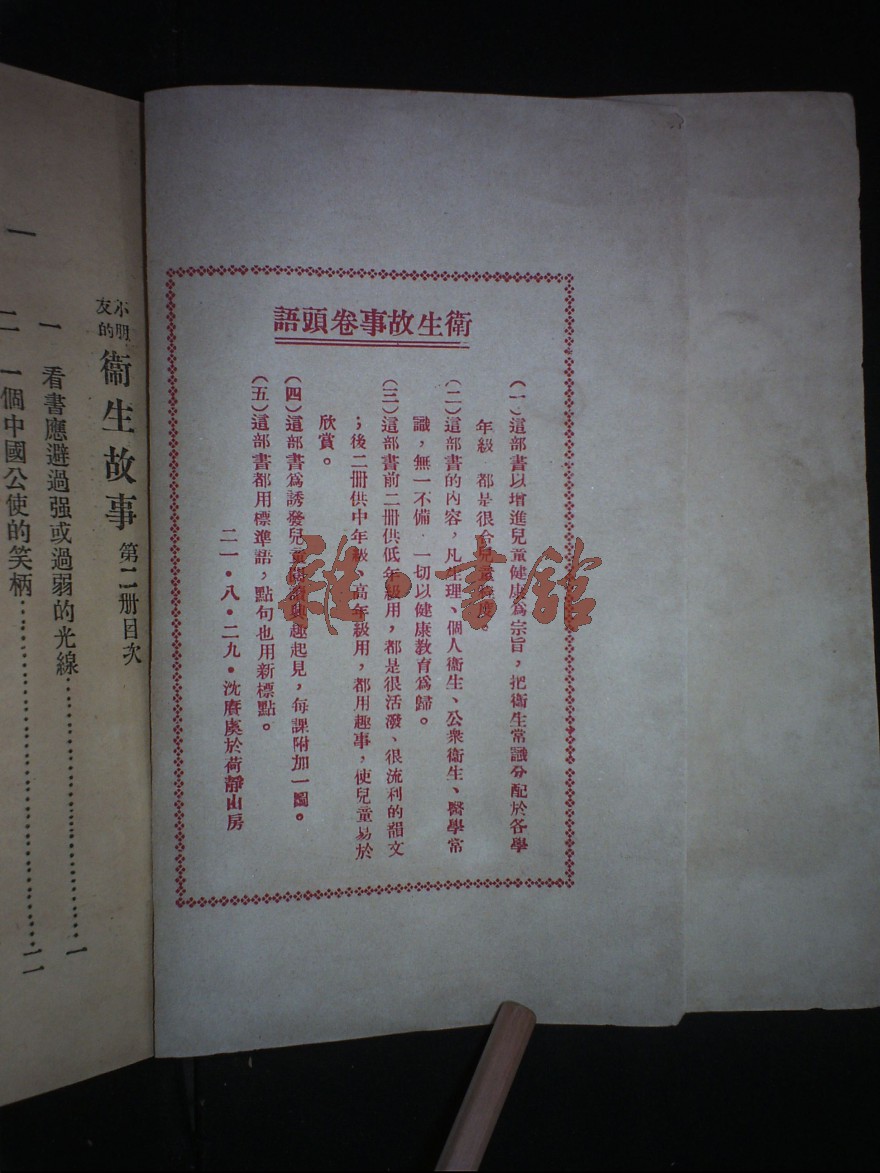 衛生故事卷頭語
（一）這部書以增進兒童健康爲宗旨，把衞生常識分配於各學
年級　都是很合兒童程度。
（二）這部書的內容，凡生理、個人衞生、公衆衞生、醫學常
識，無一不備．一切以健康教育爲歸。
（三）這部書前二册供低年級用，都是很活潑、很流利的韻文
；後二册供中年級、高年級用，都用趣事，使兒童易於
欣賞。
（四）這部書爲誘發兒童閱讀興趣起見，每課附加一圖。
（五）這部書都用標準語，點句也用新標點。
二一・八・二九・沈賡虞於荷靜山房
小朋友的 衞生故事 第二册目次
一 看書應避過强或過弱的光線……一
二 一個中國公使的笑柄……二
一
雅・書館